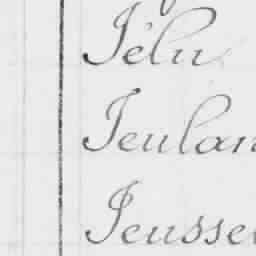 Jélu
Jeulan
Jeusse